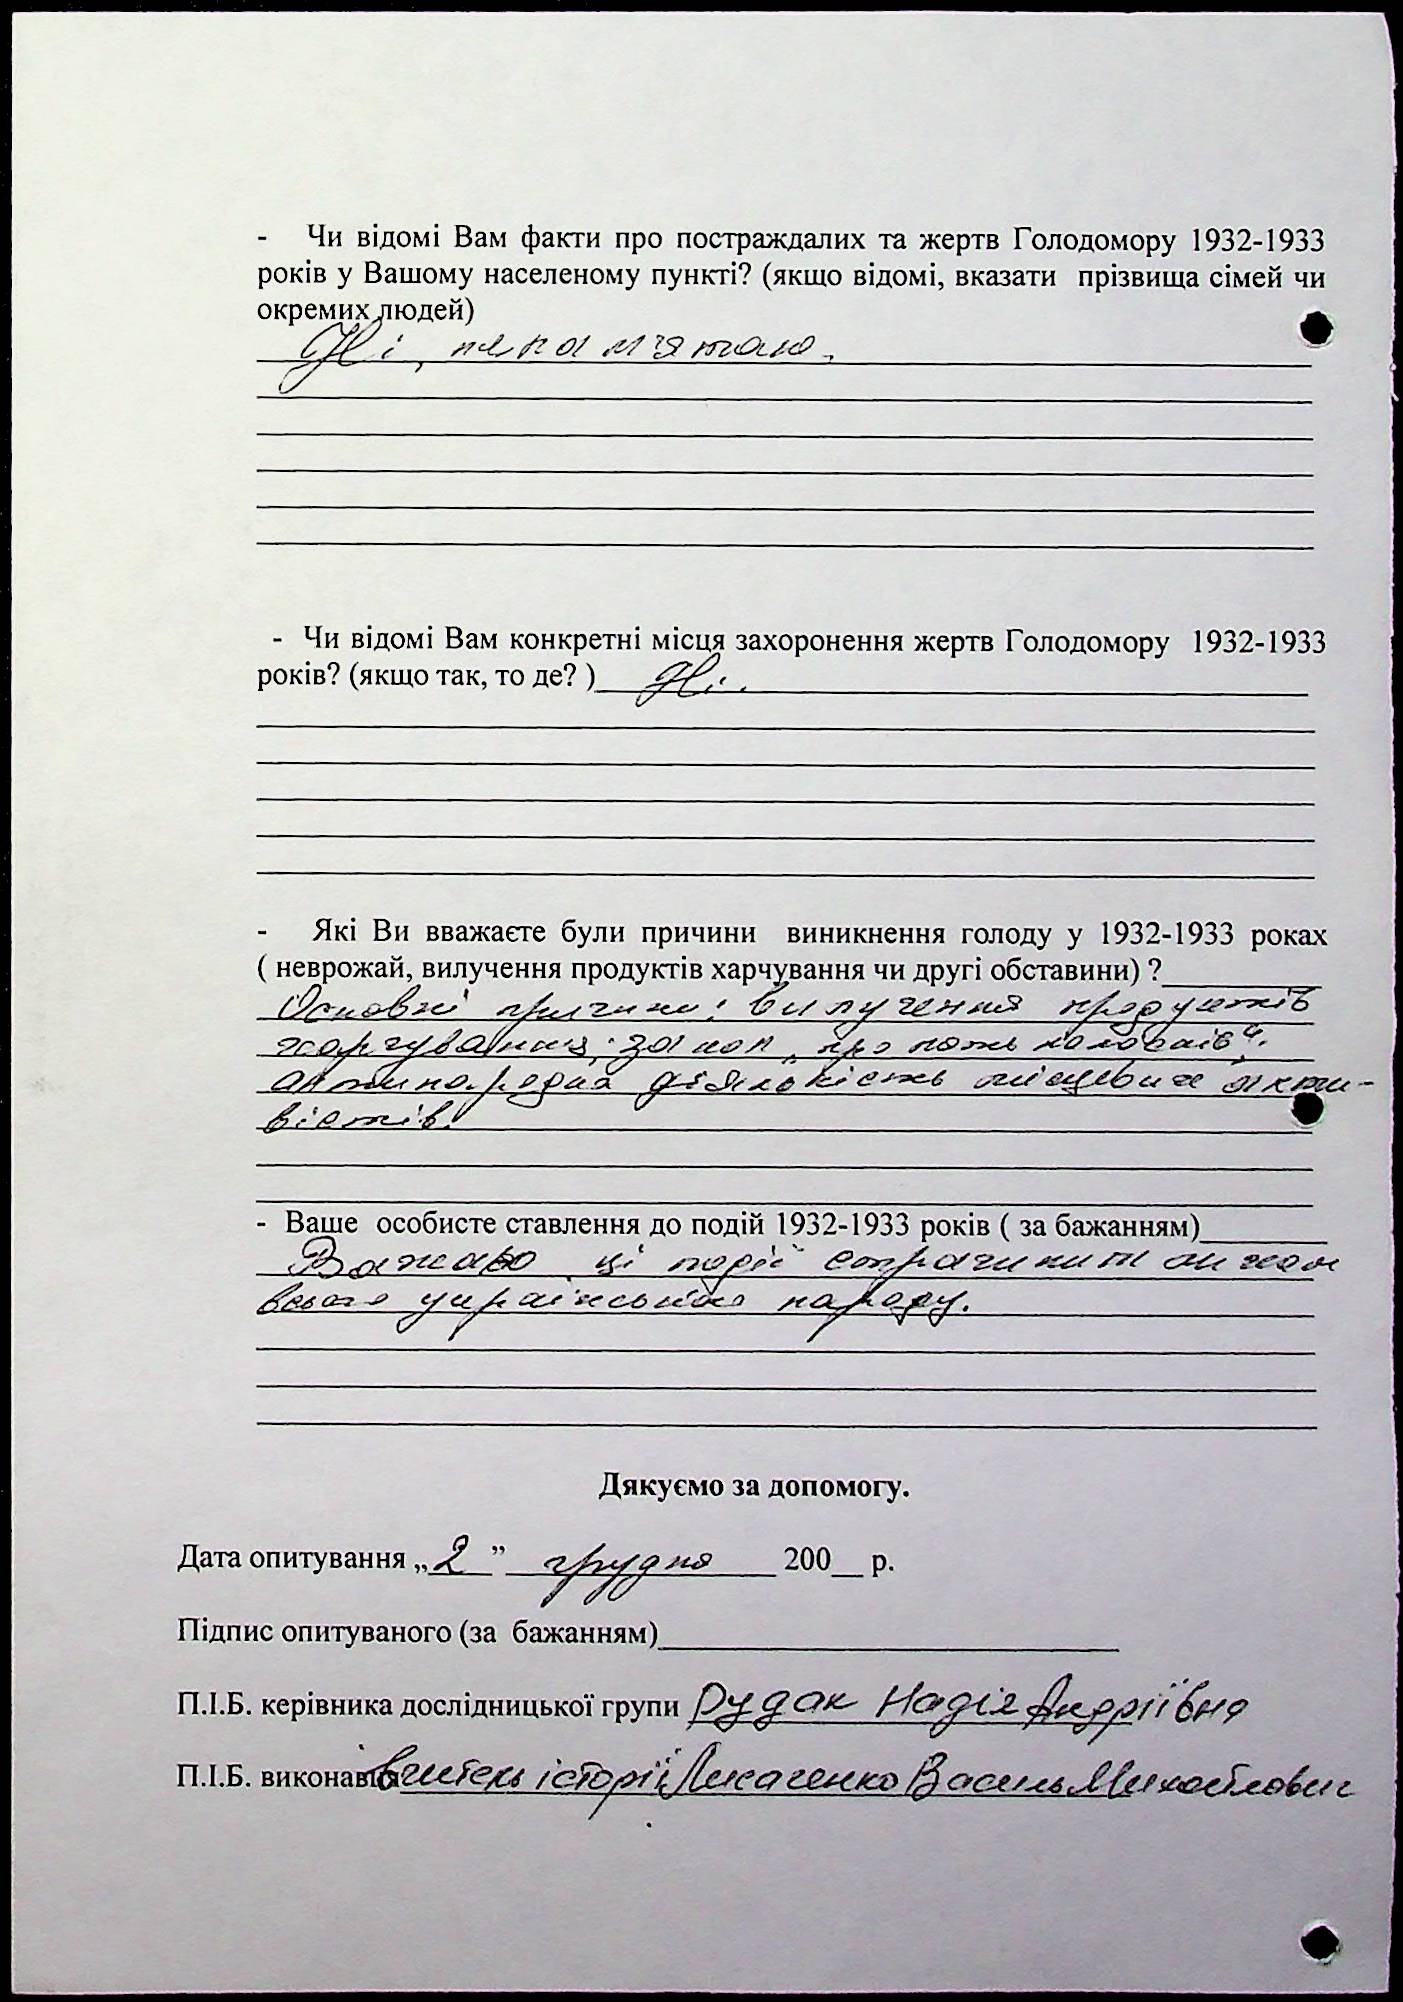 - Чи відомі Вам факти про постраждалих та жертв Голодомору 1932-1933
років у Вашому населеному пункті? (якщо відомі, вказати прізвища сімей чи
окремих людей)
Ні, не пам'ятаю.
- Чи відомі Вам конкретні місця захоронення жертв Голодомору 1932-1933
років? (якщо так, то де? ) Ні.
- Які Ви вважаєте були причини виникнення голоду у 1932-1933 роках
( неврожай, вилучення продуктів харчування чи другі обставини) ?
Основні причини: вилучення продуктів
харчування; закон „про п'ять колосків“.
антинародна діяльність місцевих акти-
вістів.
- Ваше особисте ставлення до подій 1932-1933 років ( за бажанням)
Вважаю ці події страшним лихом
всього українського народу.
Дякуємо за допомогу.
Дата опитування „ 2 ” грудня 200__ р.
Підпис опитуваного (за бажанням)
П.І.Б. керівника дослідницької групи Рудак Надія Андріївна
П.І.Б. виконавця вчитель історії Лисаченко Василь Михайлович